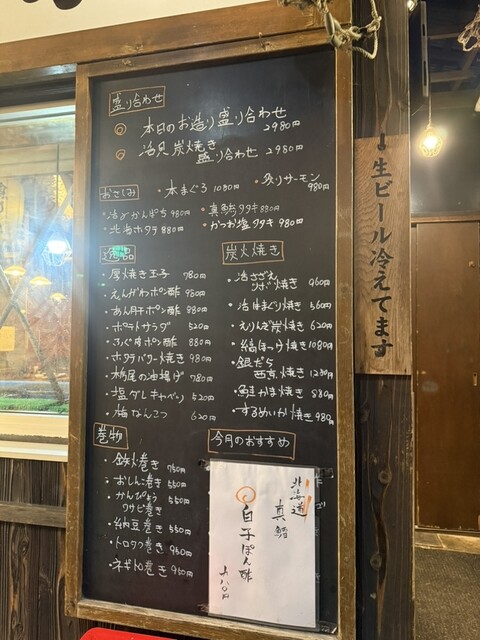 盛り合わせ
本日のお造り盛り合わせ
2980円
活貝炭焼き
盛り合わせ 2980円
おさしみ
・本まぐろ 1080円
・炙りサーモン
980円
・活〆かんぱち 980円
・真鯛タタキ 880円
・北海ホタテ 880円
・かつお塩タタキ 980円
逸品
・厚焼き玉子 780円
・えんがわポン酢 980円
・あん肝ポン酢 980円
・ポテトサラダ 520円
ポン酢 880円
・ホタテバター焼き 980円
・栃尾の油揚げ 780円
・塩ダレキャベツ 520円
・梅なんこつ 620円
炭火焼き
・活さざえ
つぼ焼き 960円
・活はまぐり焼き 560円
・えりんぎ炭焼き 620円
・縞ほっけ焼き 1080円
・銀だら
西京焼き 1280円
・鮭かま焼き 880円
・するめいか焼き 980円
巻物
・鉄火巻き 950円
・おしんこ巻き 550円
・かんぴょう 550円
ワサビ巻き
・納豆巻き 550円
・トロタク巻き 950円
・ネギトロ巻き 950円
今月のおすすめ
北海道
真鱈
白子ぽん酢
生ビール冷えてます